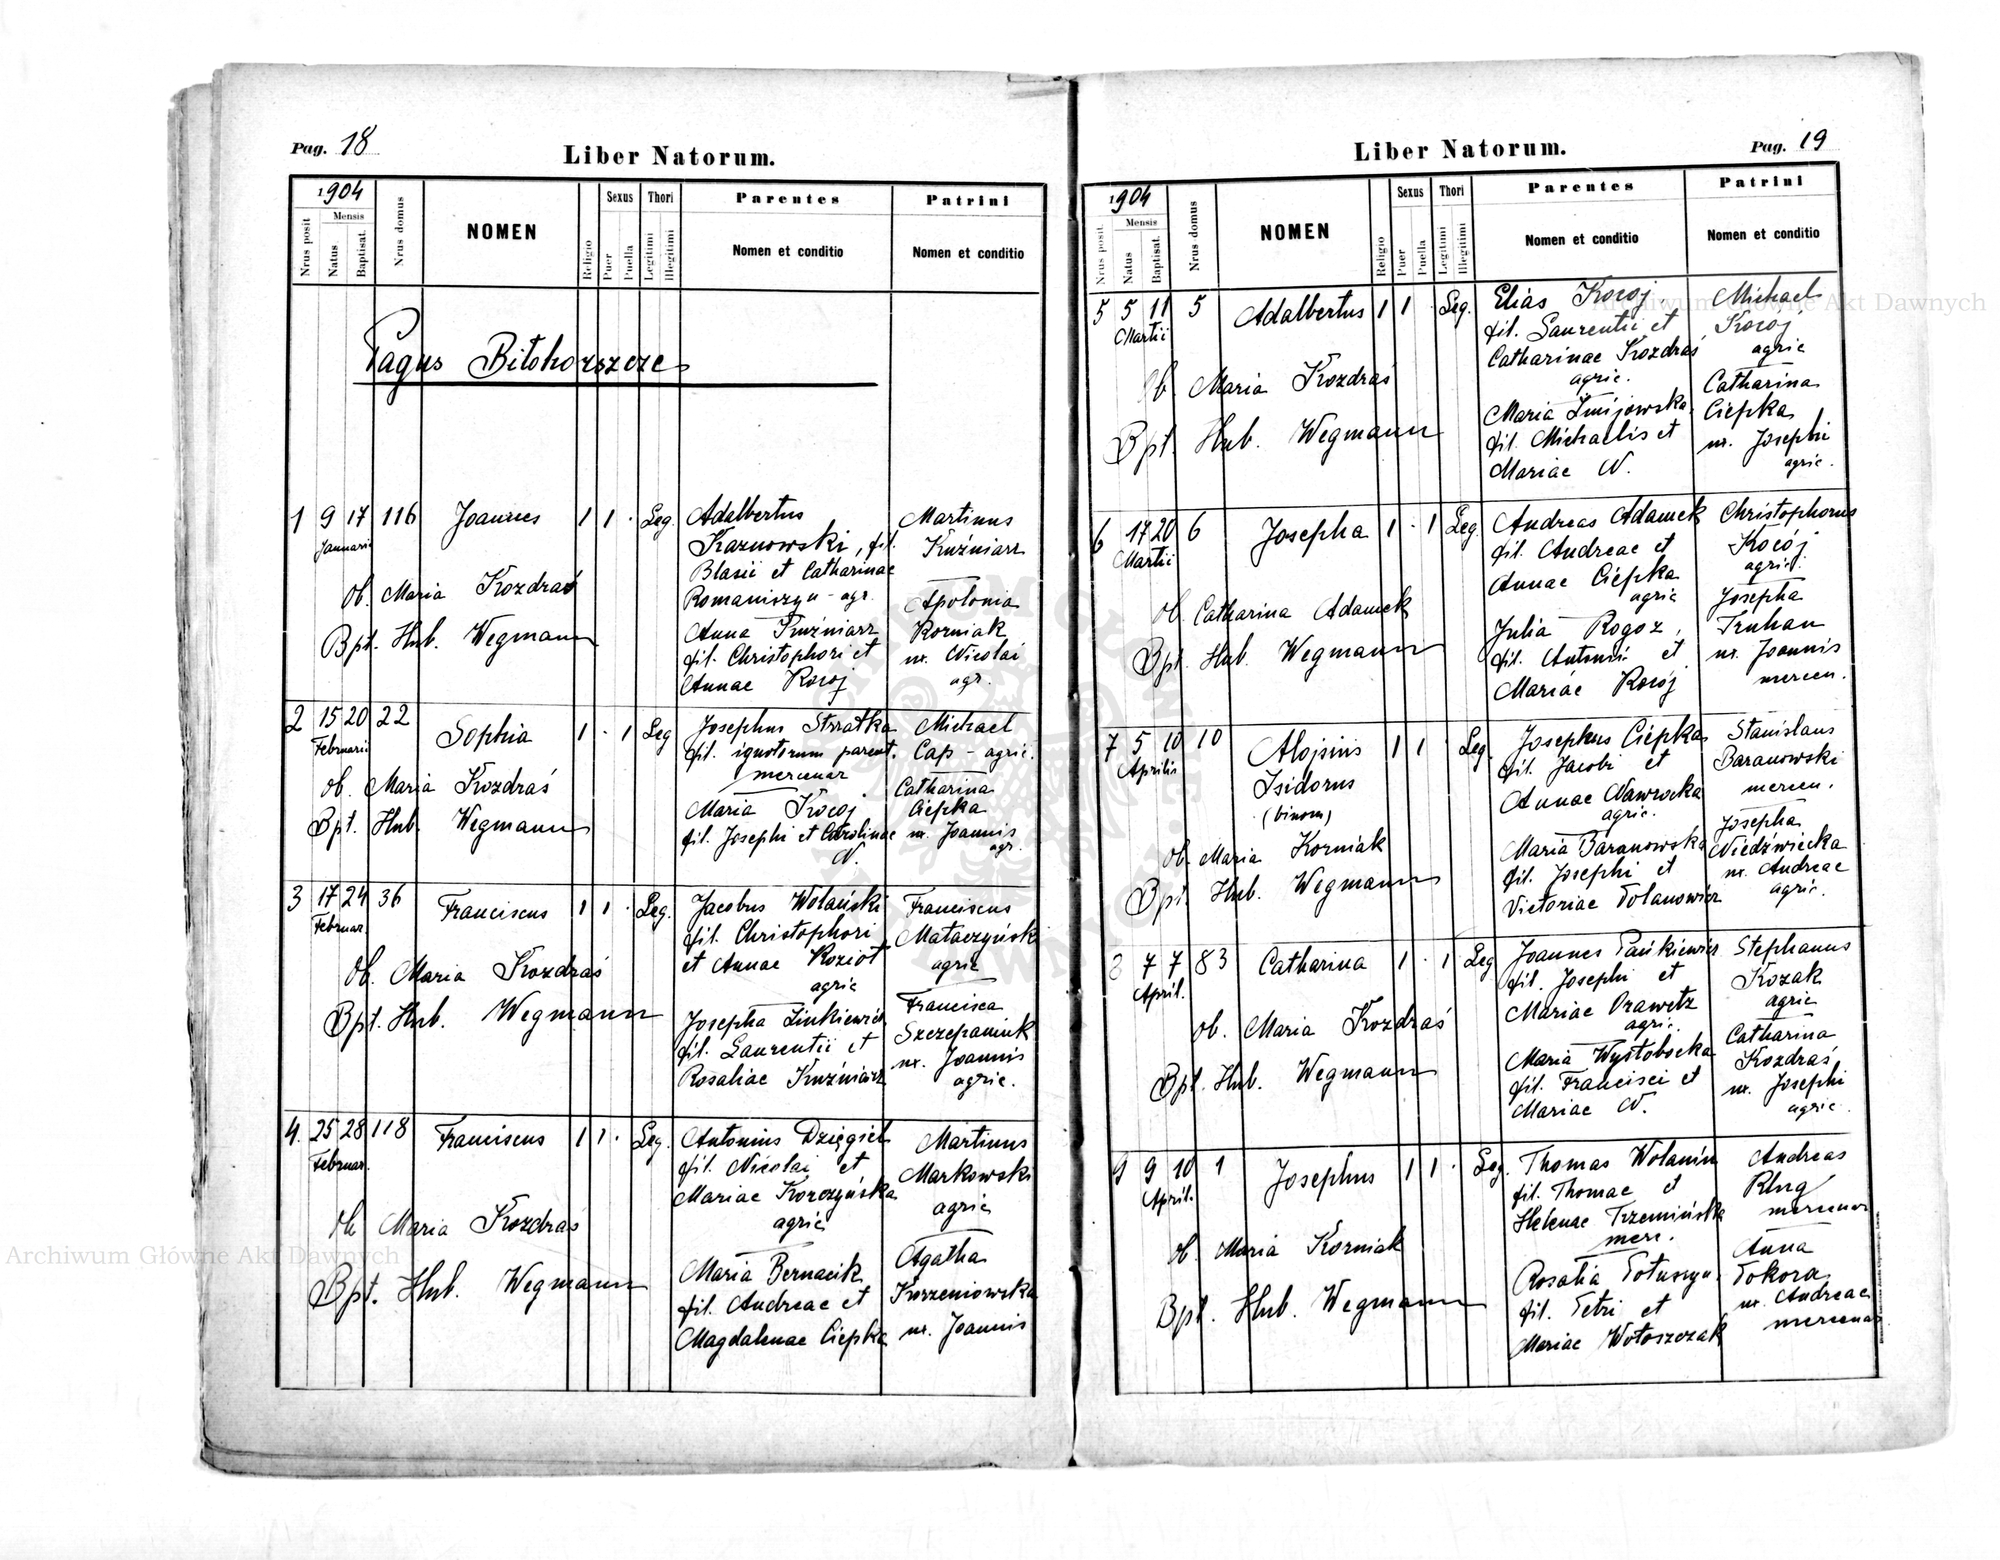 Pag. 18
Liber Natorum.
1904
Nrus posit
Mensis
Natus
Baptisat.
Nrus domus
NOMEN
Religio
Sexus
Puer
Puella
Thori
Legitimi
Illegitimi
Parentes
Nomen et conditio
Patrini
Nomen et conditio
Pagus Biłohorszcze
1 9 17 116 Joannes 1 1 · Leg.
Januarii
ob. Maria Kozdraś
Bpt. Hub. Wegmann
Adalbertus
Kaznowski, fil.
Blasii et Catharinae
Romaniszyn - agr.
Anna Kuźniarz
fil. Christophori et
Annae Kocoj
Martinus
Kuźniarz
Apolonia
Korniak
ux. Nicolai
agr.
2 15 20 22 Sophia 1 · 1 Leg
Februarii
ob. Maria Kozdraś
Bpt. Hub. Wegmann
Josephus Strzałka
fil. ignotorum parent.
mercenar
Maria Kocoj
fil. Josephi et Carolinae
N.
Michael
Cap - agric.
Catharina
Ciepka
ux. Joannis
agr.
3 17 24 36 Franciscus 1 1 · Leg.
Februar.
ob. Maria Kozdraś
Bpt. Hub. Wegmann
Jacobus Wolański
fil. Christophori
et Annae Kozioł
agric
Josepha Linkiewicz
fil. Laurentii et
Rosaliae Kuźniarz
Franciscus
Mataczyński
agric
Francisca
Szczepaniuk
ux. Joannis
agric.
4. 25 28 118 Franciscus 1 1 · Leg.
Februar.
ob. Maria Kozdraś
Bpt. Hub. Wegmann
Antonius Dzięgiel
fil. Nicolai et
Mariae Korczyńska
agric
Maria Bernacik
fil. Andreae et
Magdalenae Ciepka
Martinus
Markowski
agric
Agatha
Korzeniowska
ux. Joannis
Liber Natorum.
Pag. 19
1904
Nrus posit.
Mensis
Natus
Baptisat.
Nrus domus
NOMEN
Religio
Sexus
Puer
Puella
Thori
Legitimi
Illegitimi
Parentes
Nomen et conditio
Patrini
Nomen et conditio
5 5 11 5 Adalbertus 1 1 · Leg.
Martii
ob. Maria Kozdraś
Bpt. Hub. Wegmann
Elias Kocoj
fil. Laurentii et
Catharinae Kozdraś
agric.
Maria Żmijowska
fil. Michaelis et
Mariae N.
Michael
Kocoj
agric
Catharina
Ciepka
ux. Josephi
agric.
6 17 20 6 Josepha 1 · 1 Leg
Martii
ob. Catharina Adamek
Bpt. Hub. Wegmann
Andreas Adamek
fil. Andreae et
Annae Ciepka
agric
Julia Rogoz,
fil. Antonii et
Mariae Kocój
Christophorus
Kocój
agric.
Josepha
Truhan
ux. Joannis
mercen.
7 5 10 10 Alojsius 1 1 Leg.
Aprilis
Isidorus
(binom)
ob. Maria Korniak
Bpt. Hub. Wegmann
Josephus Ciepka
fil. Jacobi et
Annae Nawrocka
agric.
Maria Baranowska
fil. Josephi et
Victoriae Tolanowicz
Stanislaus
Baranowski
mercen.
Josepha
Niedźwiecka
ux. Andreae
agric.
8 7 7 83 Catharina 1 · 1 Leg
April.
ob. Maria Kozdraś
Bpt. Hub. Wegmann
Joannes Pańkiewicz
fil. Josephi et
Mariae Prawetz
agric.
Maria Wysłobocka
fil. Francisci et
Mariae N.
Stephanus
Kozak
agric
Catharina
Kozdraś
ux. Josephi
agric.
9 9 10 1 Josephus 1 1 · Leg.
April.
ob. Maria Korniak
Bpt. Hub. Wegmann
Thomas Wolanin
fil. Thomae et
Helenae Trzemińska
merc.
Rosalia Tołuszyn
fil. Petri et
Mariae Wołoszczak
Andreas
mercenar
Anna
Tokora
ux. Andreae
mercenar
Archiwum Główne Akt Dawnych
Archiwum Główne Akt Dawnych